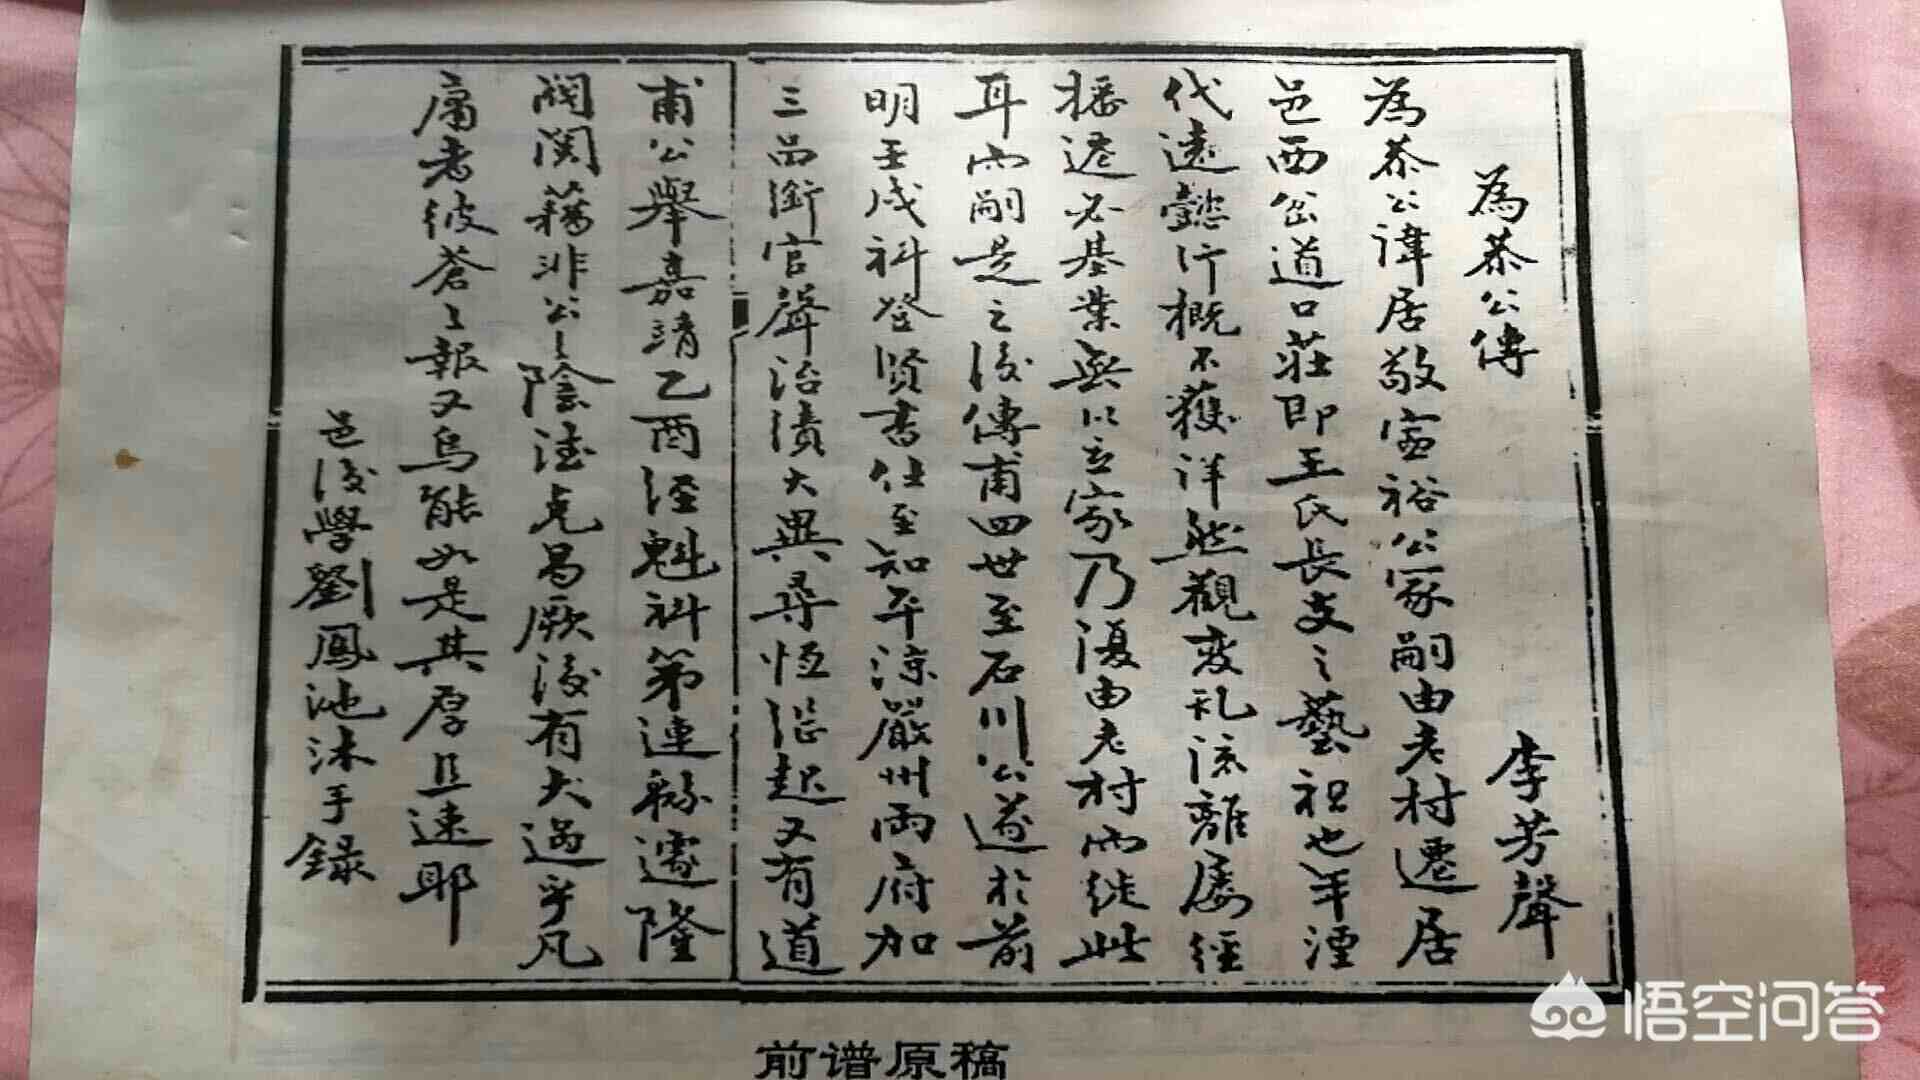 為恭公傳
李芳聲
為恭公諱居敬富裕公冢嗣由老村遷居
邑西岔道口莊即王氏長支之藝祖也年湮
代遠懿行概不獲詳然觀变乱流離屡經
播遷必基業無以立家乃復由老村而徙此
耳而嗣是之後傳甫四世至石川公遂於前
明壬戌科登贤書仕至知平涼嚴州兩府加
三品銜官聲治漬大異尋恆继起又有道
甫公舉嘉靖乙酉經魁科第連緜遽隆
閥閱藉非公之陰德克昌厥後有大過乎凡
庸者彼蒼之報又烏能如是其厚且速耶
邑後學劉鳳池沐手錄
前谱原稿
悟空问答